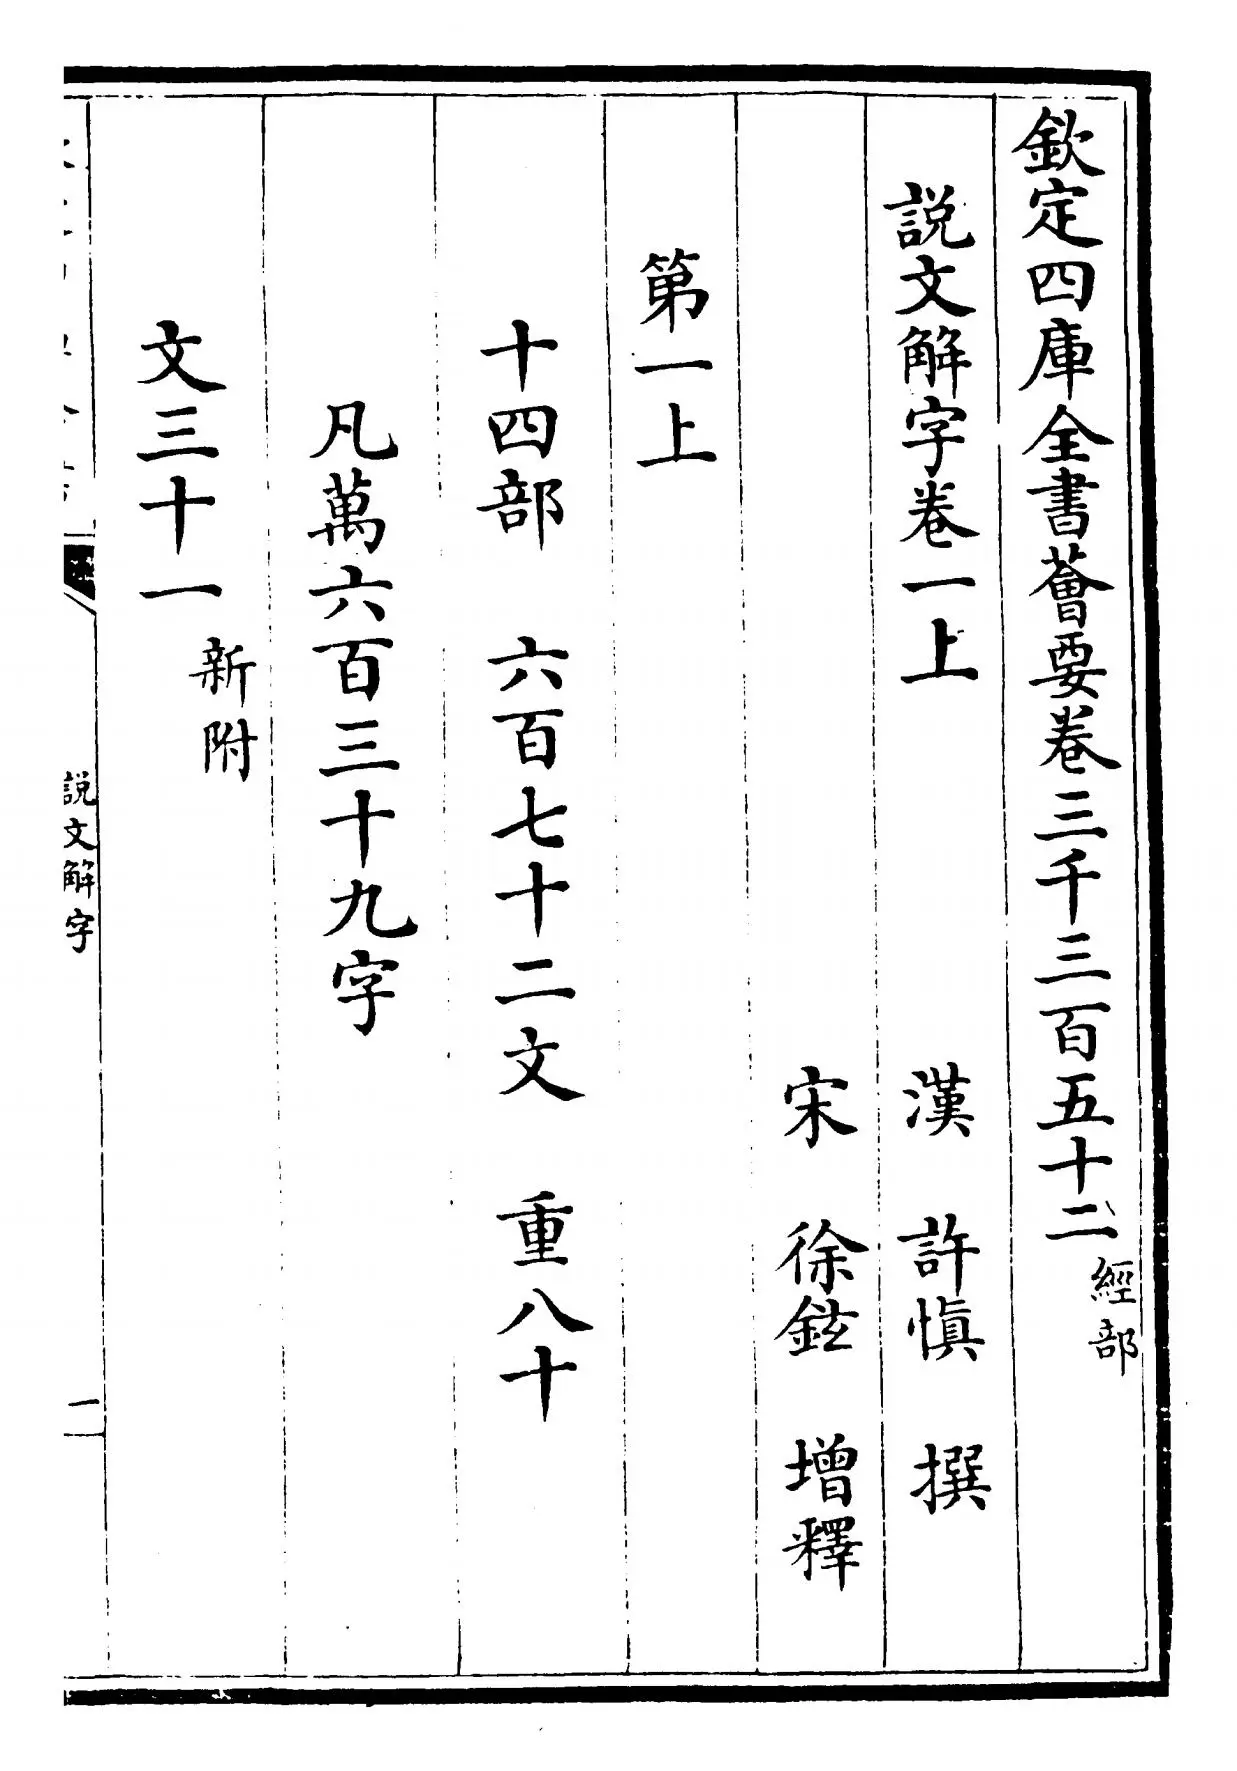 欽定四庫全書薈要卷三千三百五十二經部
説文解字卷一上 漢 許慎 撰
宋 徐鉉 增釋
第一上
十四部 六百七十二文 重八十
凡萬六百三十九字
文三十一新附
説文解字
一